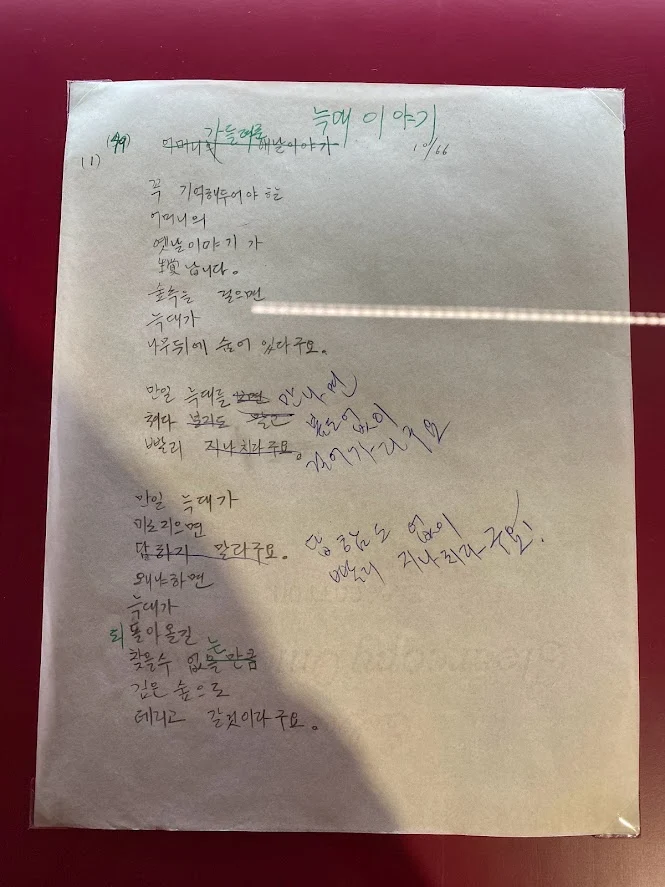 늑대 이야기
(49) 어머니의 옛날이야기 10/66
(1)
꼭 기억해두어야 하는
어머니의
옛날이야기가
생각납니다.
숲속을 걸으면
늑대가
나무뒤에 숨어 있다구요.
만일 늑대를 보면 만나면
쳐다 보지도 말고 봄도없이
빨리 지나치라구요. 걸어가라구요
만일 늑대가
미소지으면
답하기 말라구요. 답함도 없이
빨리 지나치라구요!
왜냐하면
늑대가
되돌아올길
찾을수 없을만큼 는
깊은 숲으로
데리고 갈것이라구요.